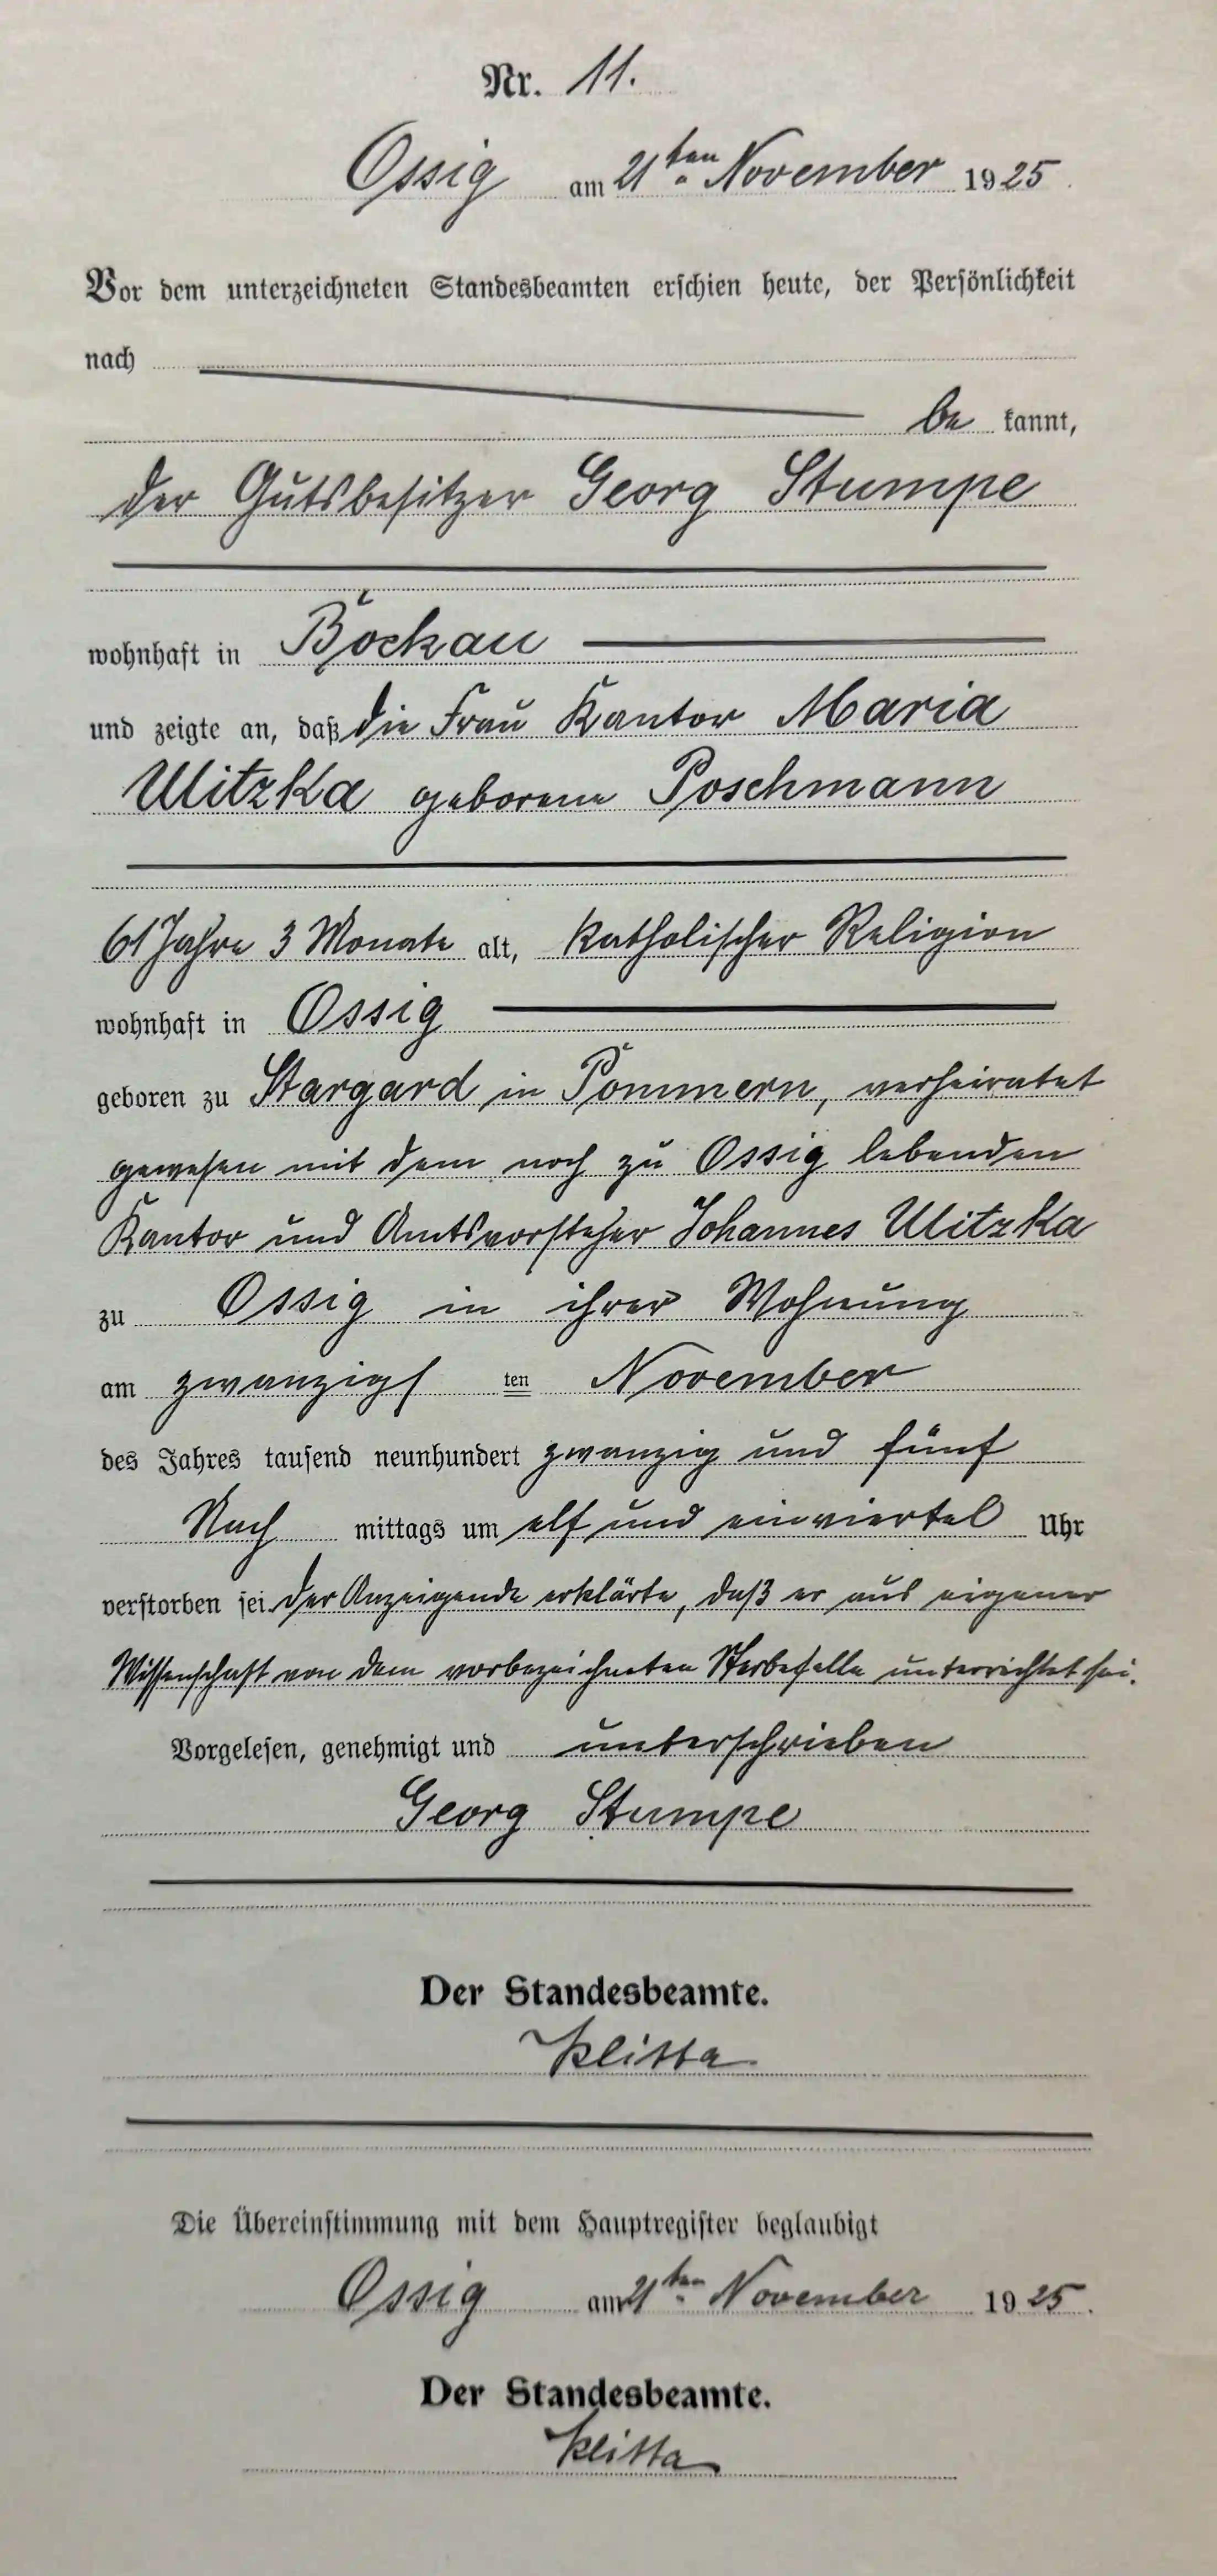 Nr. 11.
Ossig am 21ten November 1925.
Vor dem unterzeichneten Standesbeamten erschien heute, der Persönlichkeit
nach
be kannt,
der Gutsbesitzer Georg Stumpe
wohnhaft in Böckau
und zeigte an, daß die Frau Kantor Maria
Ulitzka geborene Poschmann
61 Jahre 3 Monate alt, katholischer Religion
wohnhaft in Ossig
geboren zu Stargard in Pommern, verheiratet
gewesen mit dem noch zu Ossig lebenden
Kantor und Amtsvorsteher Johannes Ulitzka
zu Ossig in ihrer Wohnung
am zwanzigs ten November
des Jahres tausend neunhundert zwanzig und fünf
Nach mittags um elf und einviertel Uhr
verstorben sei. Der Anzeigende erklärte, daß er aus eigener
Wissenschaft von dem vorbezeichneten Sterbefalle unterrichtet sei.
Vorgelesen, genehmigt und unterschrieben
Georg Stumpe
Der Standesbeamte.
Die Übereinstimmung mit dem Hauptregister beglaubigt
Ossig am 21ten November 1925.
Der Standesbeamte.